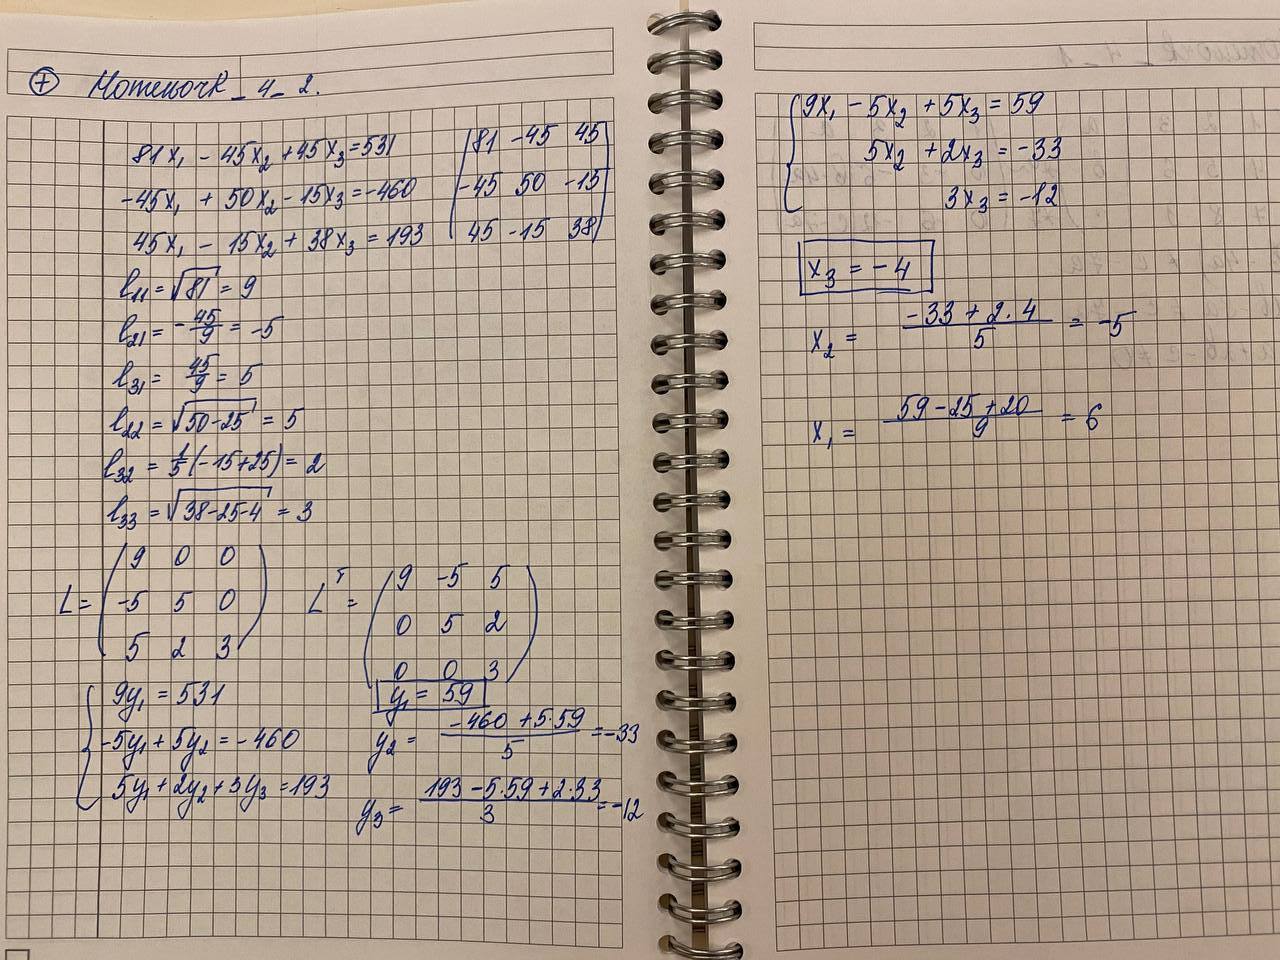 ⑦ Homework_4_2.
81x₁ - 45x₂ + 45x₃ = 531
-45x₁ + 50x₂ - 15x₃ = -460
45x₁ - 15x₂ + 38x₃ = 193
81 -45 45
-45 50 -15
45 -15 38
l₁₁ = √81 = 9
l₂₁ = -45/9 = -5
l₃₁ = 45/9 = 5
l₂₂ = √(50-25) = 5
l₃₂ = 1/5(-15+25) = 2
l₃₃ = √(38-25-4) = 3
L =
9 0 0
-5 5 0
5 2 3
Lᵀ =
9 -5 5
0 5 2
0 0 3
9y₁ = 531
-5y₁ + 5y₂ = -460
5y₁ + 2y₂ + 3y₃ = 193
y₁ = 59
y₂ = (-460 + 5·59)/5 = -33
y₃ = (193 - 5·59 + 2·33)/3 = -12
9x₁ - 5x₂ + 5x₃ = 59
5x₂ + 2x₃ = -33
3x₃ = -12
x₃ = -4
x₂ = (-33 + 2·4)/5 = -5
x₁ = (59 - 25 + 20)/9 = 6